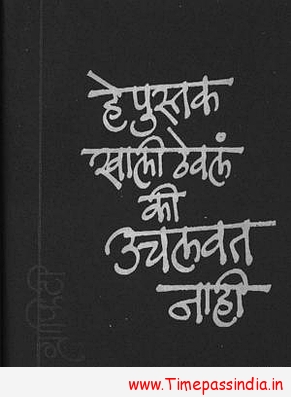 हे पुस्तक
खाली ठेवलं
की
उचलवत
नाही
ग्राफिटी
www.Timepassindia.in